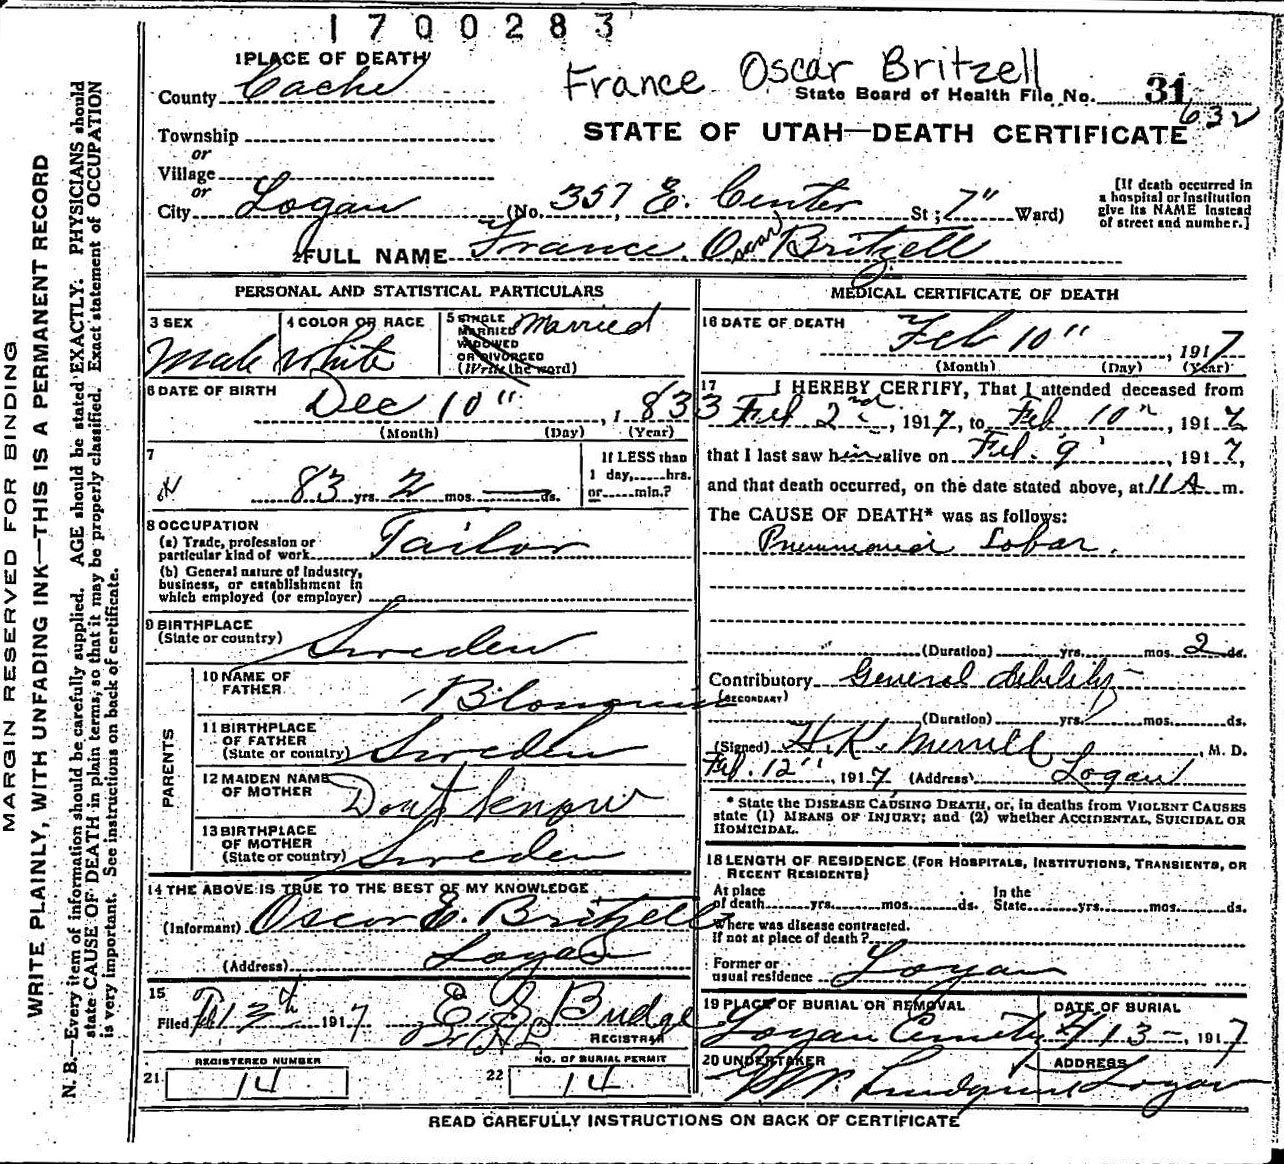 1700283
1 PLACE OF DEATH
County Cache
France Oscar Britzell
State Board of Health File No. 31
632
Township
or
Village
or
City Logan (No. 357 E. Center St; 7" Ward)
STATE OF UTAH—DEATH CERTIFICATE
[If death occurred in
a hospital or institution
give its NAME instead
of street and number.]
2 FULL NAME France Oscar Britzell
PERSONAL AND STATISTICAL PARTICULARS
3 SEX
Male
4 COLOR OR RACE
White
5 SINGLE
MARRIED
WIDOWED
OR DIVORCED
(Write the word)
Married
6 DATE OF BIRTH
Dec 10", 1833
(Month) (Day) (Year)
7
83 yrs. 2 mos. — ds.
If LESS than
1 day,......hrs.
or......min.?
8 OCCUPATION
(a) Trade, profession or
particular kind of work Tailor
(b) General nature of Industry,
business, or establishment in
which employed (or employer)
9 BIRTHPLACE
(State or country) Sweden
PARENTS
10 NAME OF
FATHER
11 BIRTHPLACE
OF FATHER
(State or country) Sweden
12 MAIDEN NAME
OF MOTHER Dont know
13 BIRTHPLACE
OF MOTHER
(State or country) Sweden
14 THE ABOVE IS TRUE TO THE BEST OF MY KNOWLEDGE
(Informant) Oscar E. Britzell
(Address) Logan
15
Filed 13th 1917 Budge
REGISTRAR
REGISTERED NUMBER
21 14
NO. OF BURIAL PERMIT
22 14
MEDICAL CERTIFICATE OF DEATH
16 DATE OF DEATH
Feb 10", 1917
(Month) (Day) (Year)
17 I HEREBY CERTIFY, That I attended deceased from
Feb 2nd, 1917, to Feb 10", 1917
that I last saw him alive on Feb. 9, 1917,
and that death occurred, on the date stated above, at 11 A m.
The CAUSE OF DEATH* was as follows:
Pneumonia Lobar.
(Duration) yrs. mos. 2 ds.
Contributory General debility
(SECONDARY)
(Duration) yrs. mos. ds.
(Signed) H. K. Merrill, M. D.
Feb. 12", 1917 (Address) Logan
* State the DISEASE CAUSING DEATH, or, in deaths from VIOLENT CAUSES
state (1) MEANS OF INJURY; and (2) whether ACCIDENTAL, SUICIDAL OR
HOMICIDAL.
18 LENGTH OF RESIDENCE (FOR HOSPITALS, INSTITUTIONS, TRANSIENTS, OR
RECENT RESIDENTS)
At place
of death yrs. mos. ds.
In the
State yrs. mos. ds.
Where was disease contracted.
If not at place of death?
Former or
usual residence Logan
19 PLACE OF BURIAL OR REMOVAL
Logan Cemetery
DATE OF BURIAL
13, 1917
20 UNDERTAKER
Lundquist
ADDRESS
Logan
READ CAREFULLY INSTRUCTIONS ON BACK OF CERTIFICATE
MARGIN RESERVED FOR BINDING
WRITE PLAINLY, WITH UNFADING INK—THIS IS A PERMANENT RECORD
N. B.—Every item of information should be carefully supplied. AGE should be stated EXACTLY. PHYSICIANS should
state CAUSE OF DEATH in plain terms, so that it may be properly classified. Exact statement of OCCUPATION
is very important. See instructions on back of certificate.